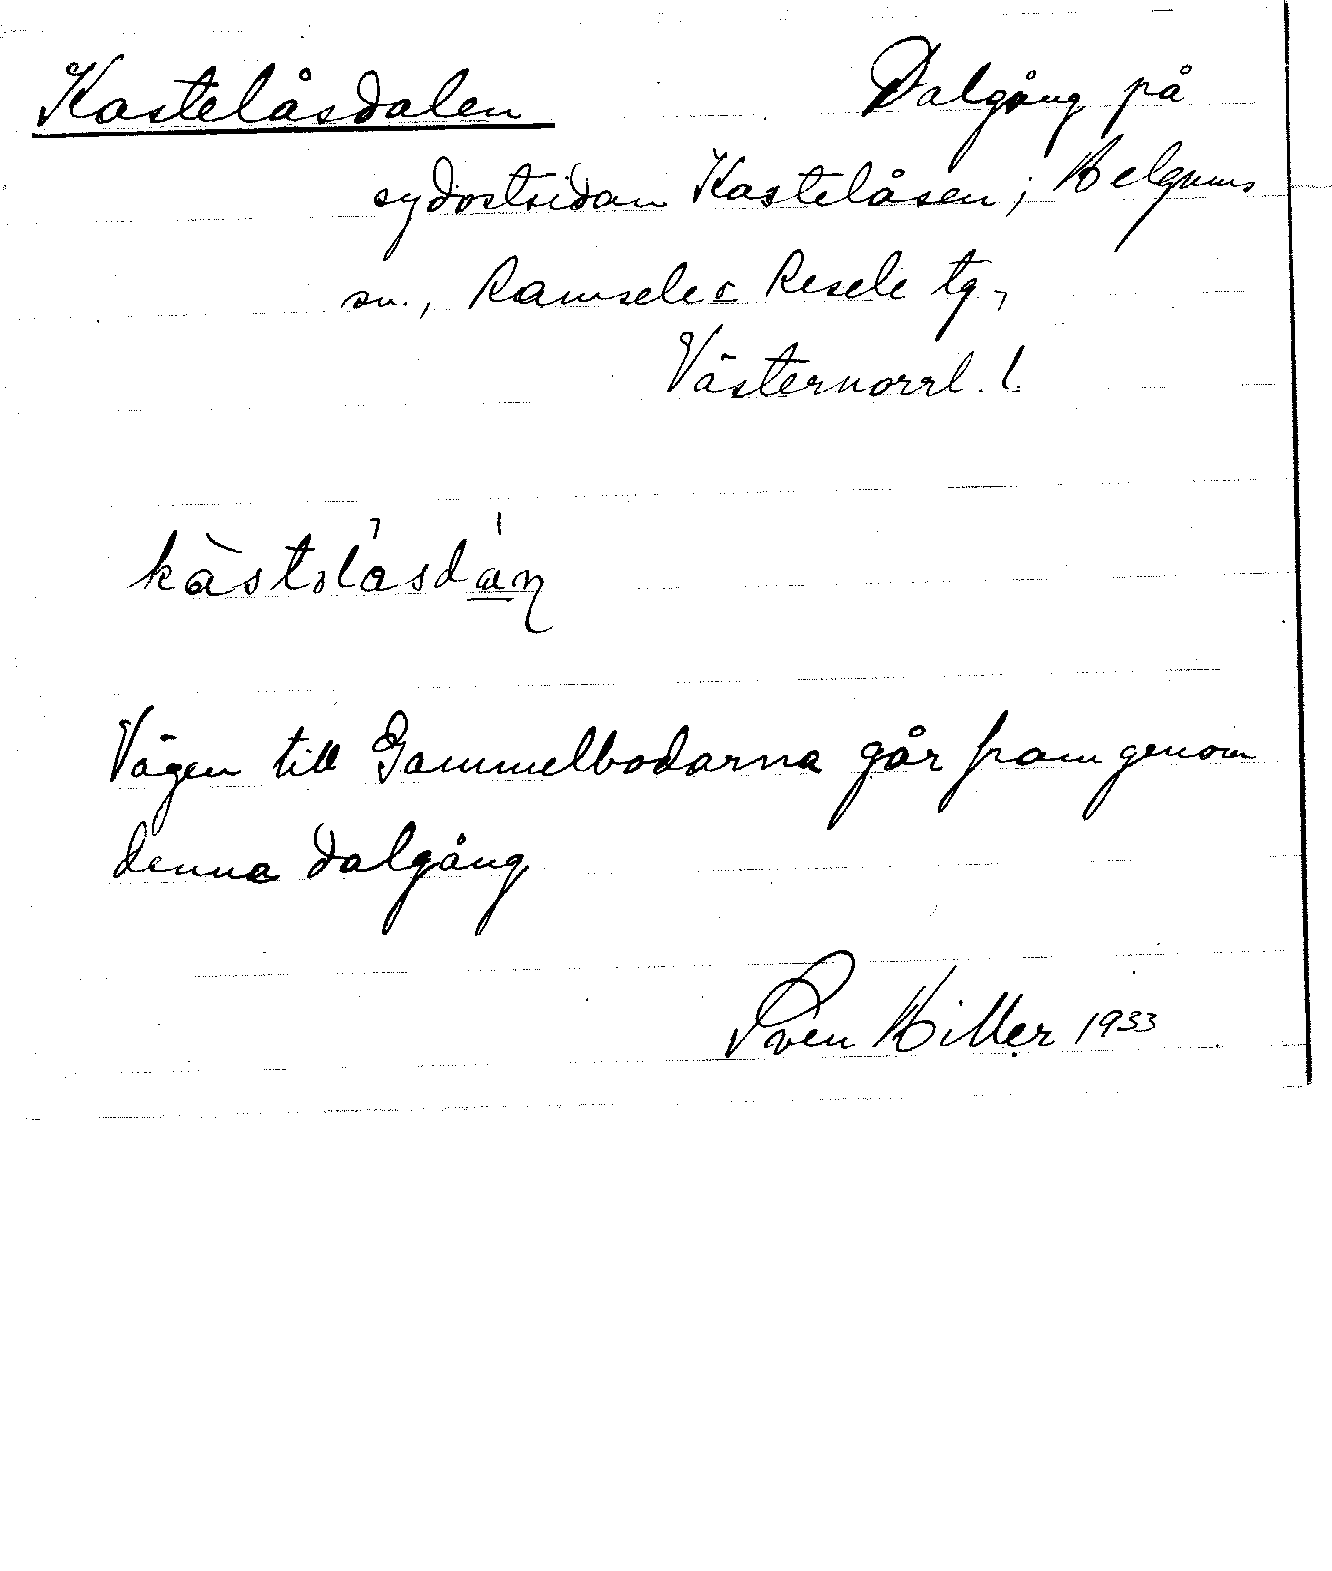 Kastelåsdalen Dalgång på
sydostsidan Kastelåsen, Helgums
sn., Ramsele o Resele tg,
Västernorrl. l.
Vägen till Gammelbodarna går fram genom
denna dalgång
Sven Hiller 1933